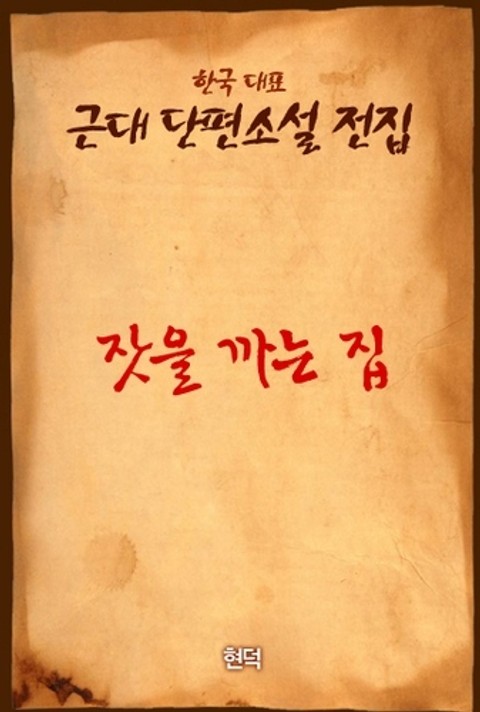 한국 대표
근대 단편소설 전집
잣을 까는 집
현덕